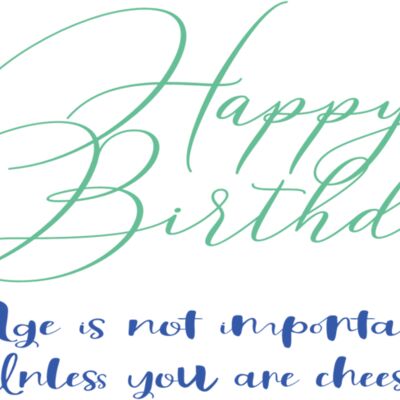 Happy
Birthd
Age is not importa
Unless you are chees